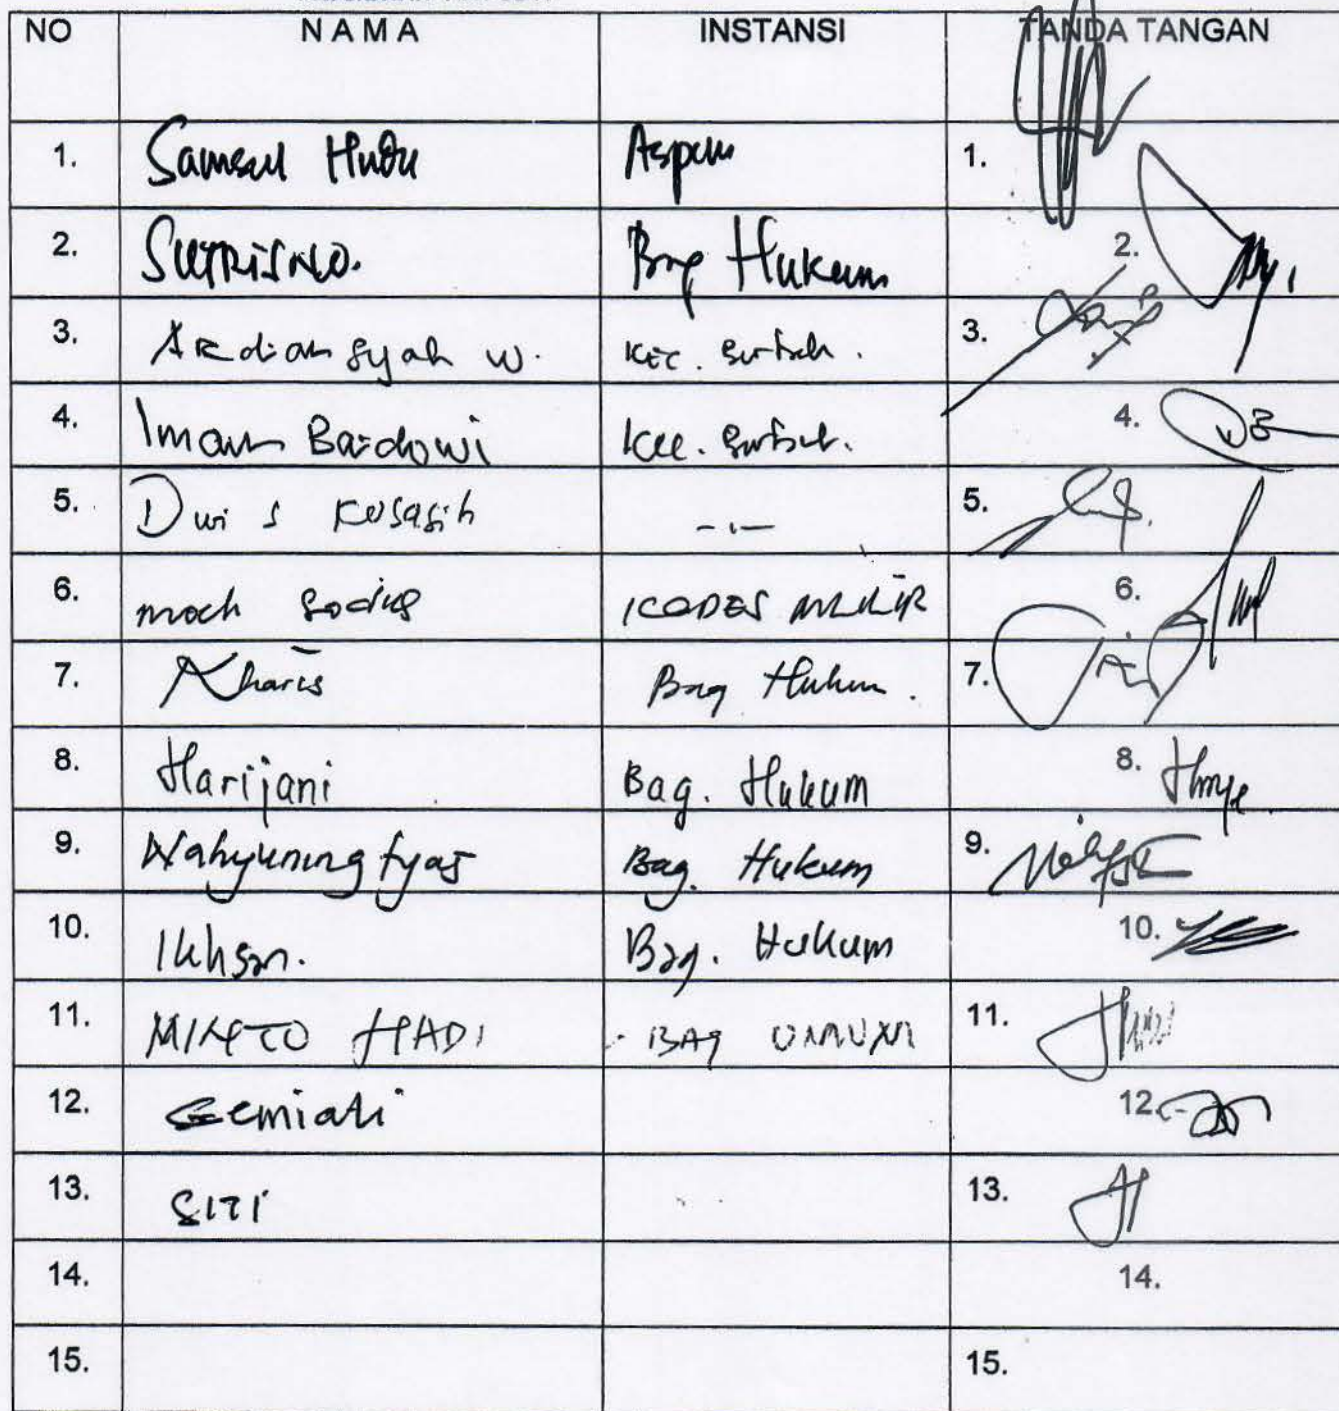 NO NAMA INSTANSI TANDA TANGAN
1. Samsul Huda Aspem 1.
2. SUTRISNO. Bag Hukum 2.
3. Ardiansyah W. Kec. 3.
4. Imam Baidowi Kec. 4.
5. Dwi S Kosasih -·- 5.
6. moch KADES 6.
7. Kharis Bag Hukum. 7.
8. Harijani Bag. Hukum 8.
9. Wahyuningtyas Bag. Hukum 9.
10. Ikhsan. Bag. Hukum 10.
11. MINTO HADI BAG UMUM 11.
12. Semiati 12.
13. SITI 13.
14. 14.
15. 15.